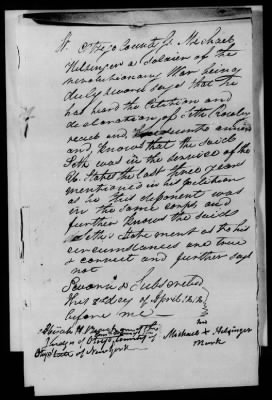 Otsego County Ss Michael
Helsinger a Soldier of the
revolutionary War being
duly sworn says that he
has heard the Petition and
declaration of Seth Rowley
read and hereunto annexed
and, knows that the said
Seth was in the service of the
U. States the last three years
mentioned in his petition
as he this deponent was
in the same corps and
further knows the said
Seth's statement as to his
circumstances are true
& correct and further says
not
Sworn & Subscribed
this day of April
before me
his
of the
Judges of Otsego County
State of New York
Michael X Helsinger
Mark